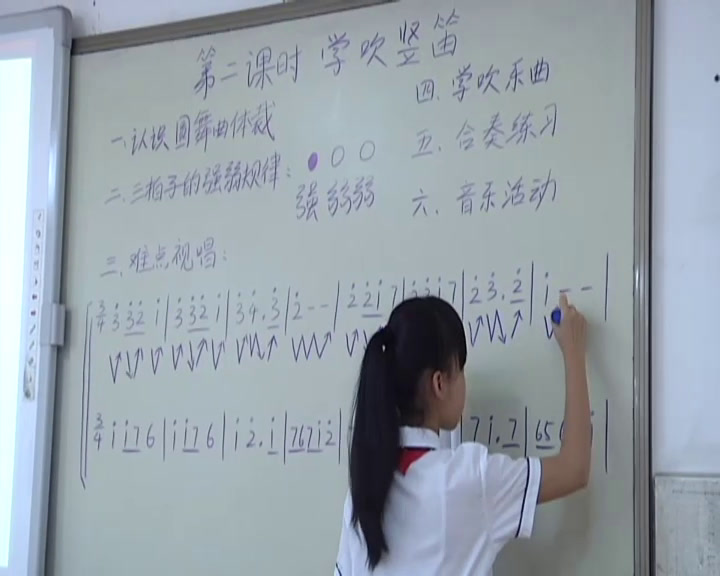 第二课时 学吹竖笛
一.认识圆舞曲体裁
二.三拍子的强弱规律: ● ○ ○
强 弱 弱
三.难点视唱:
四.学吹乐曲
五.合奏练习
六.音乐活动
3/4 3̇ 3̇2̇ 1̇ | 3̇ 3̇2̇ 1̇ | 3̇ 4̇. 3̇ | 2̇ - - | 2̇ 2̇1̇ 7 | 2̇ 2̇1̇ 7 | 2̇ 3̇. 2̇ | 1̇ - - |
3/4 1̇ 1̇7 6 | 1̇ 1̇7 6 | 1̇ 2̇. 1̇ | 7671̇2̇ | 7 1̇. 7 | 65